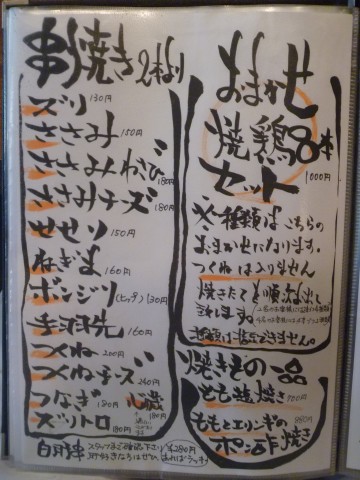 串焼き 2本より
ズリ 130円
ささみ 150円
ささみわさび 180円
ささみチーズ 180円
せせり 150円
ねぎま 160円
ボンジリ(ヒップ) 130円
手羽先 160円
つくね 200円
つくねチーズ 240円
つなぎ 180円
心臓 180円
ズリトロ 180円
白肝串
¥280円
あればラッキー
おまかせ
焼鶏8本
セット 1000円
※種類はこちらの
おまかせになります。
つくねは入りません
焼きたてを順次お出し
致します。
種類は指定できません。
焼きもの一品
もも塩焼き 700円
ももとエリンギの
ポン酢焼き 880円